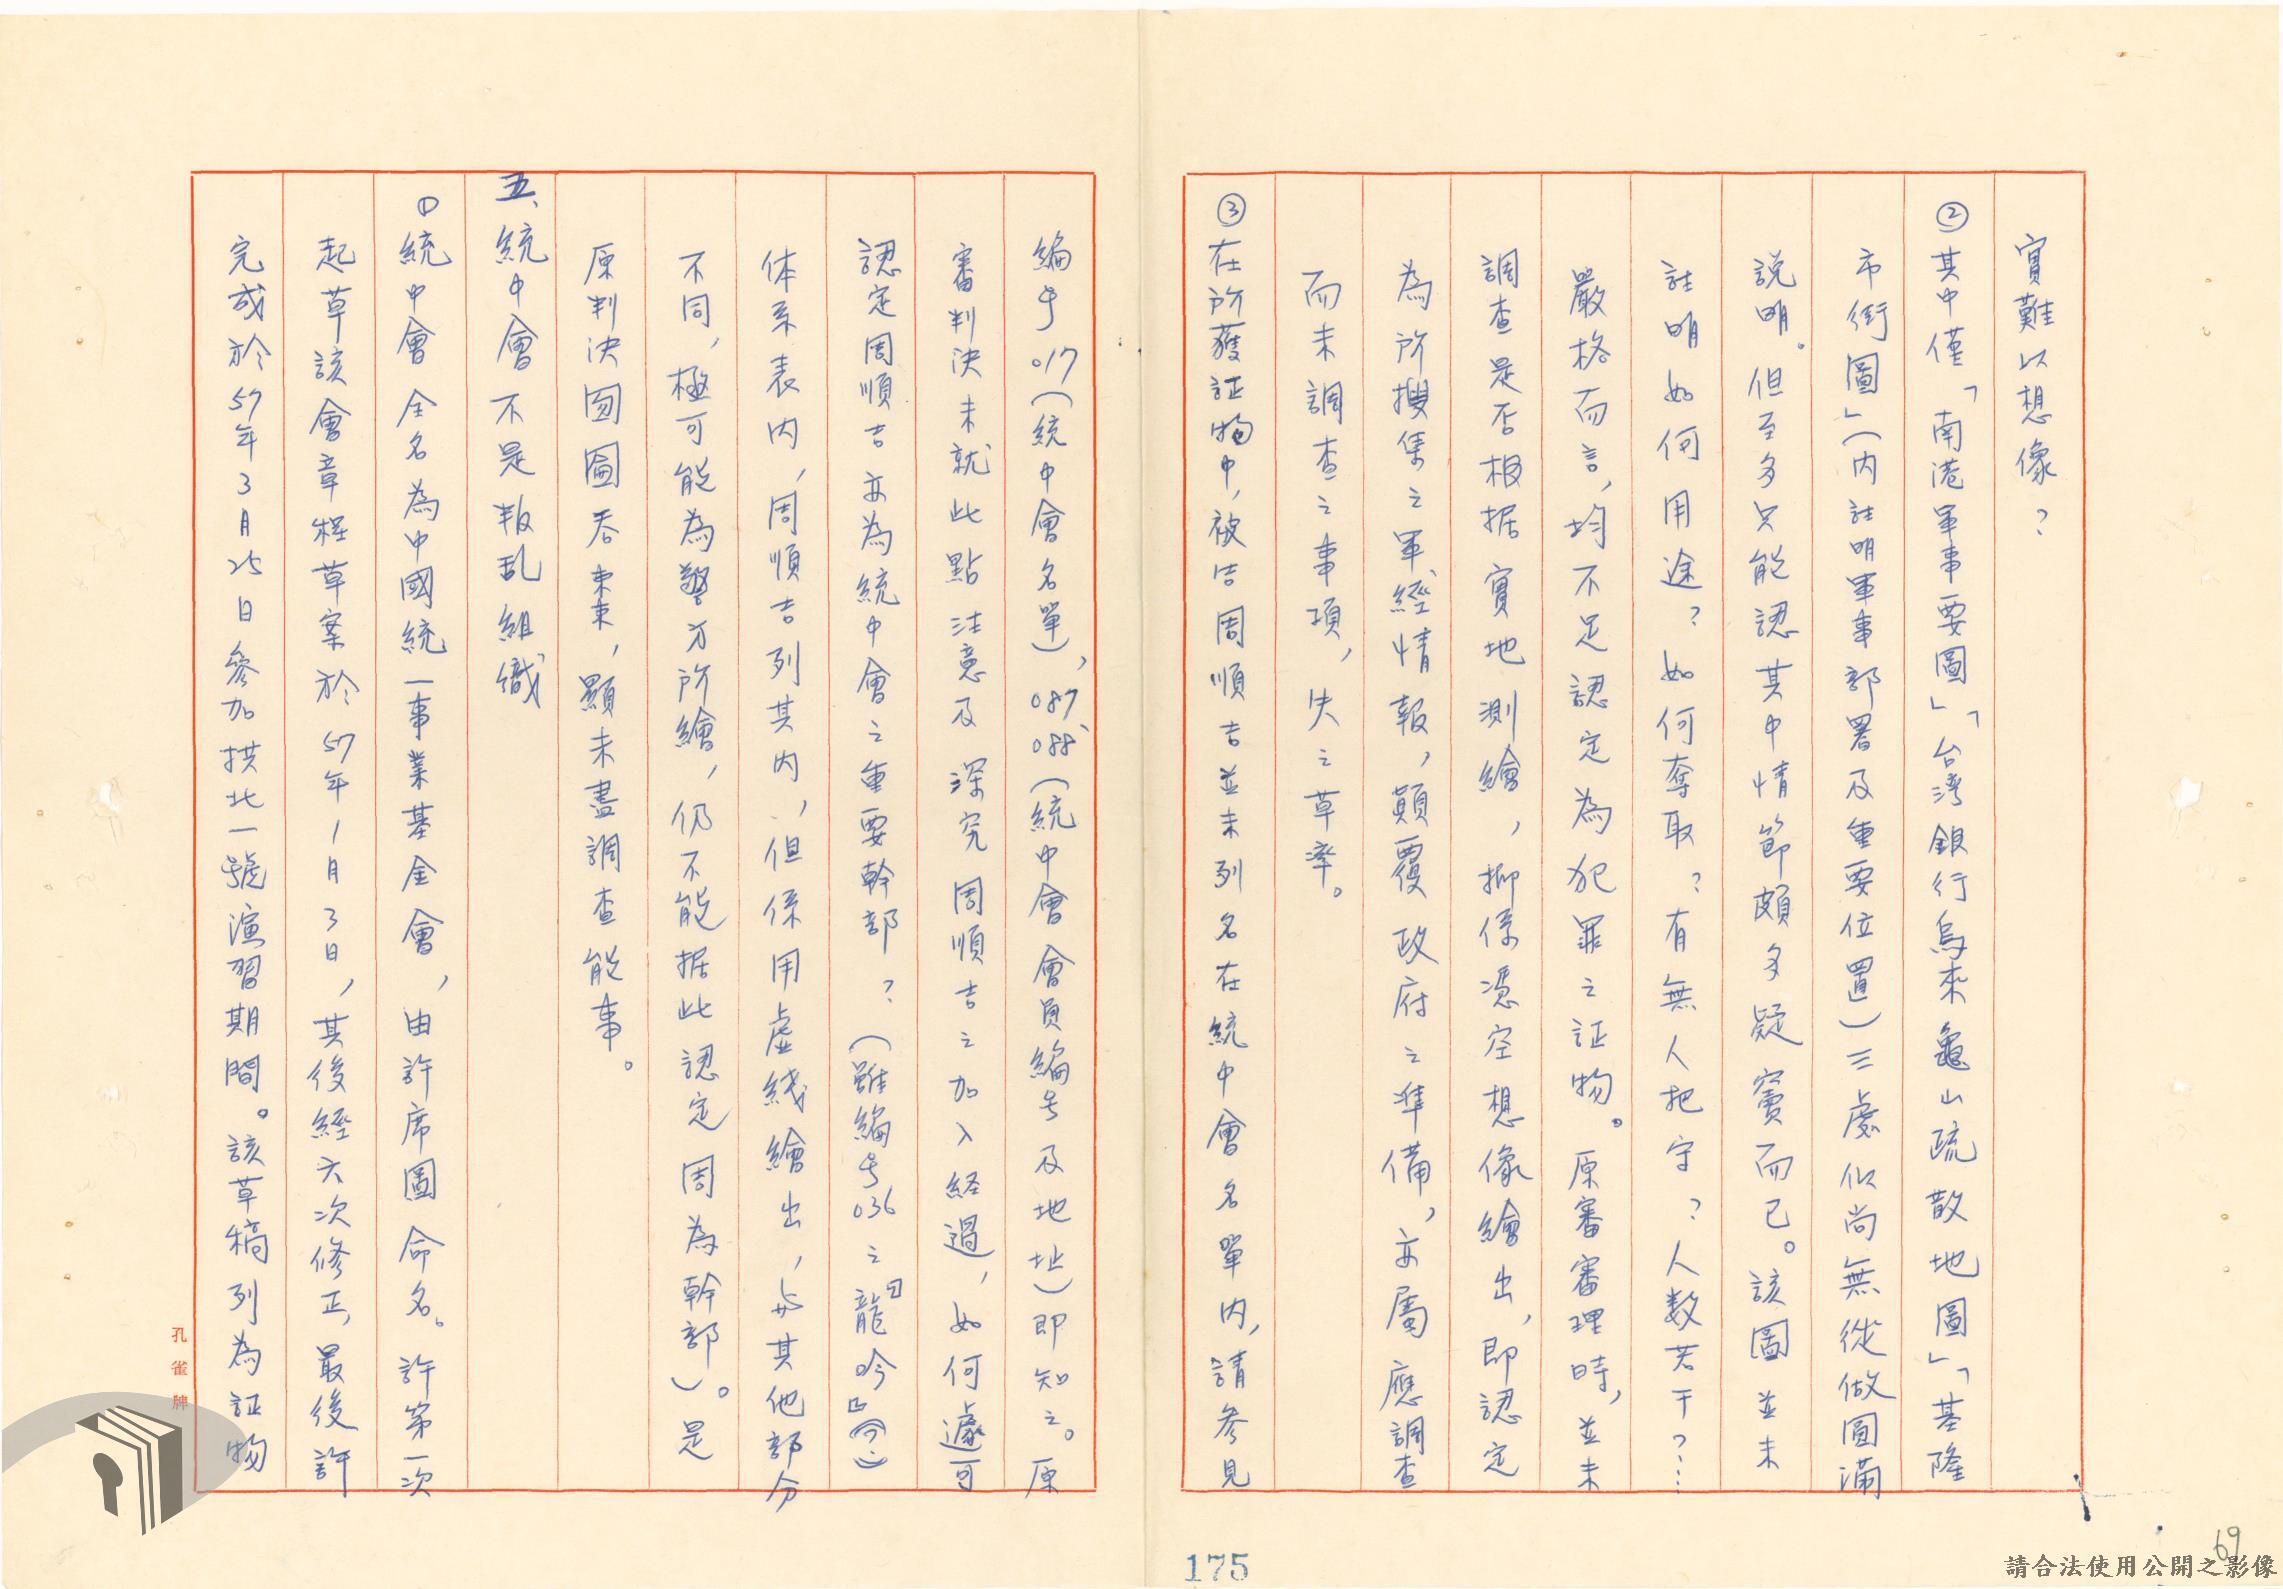 實難以想像？
②其中僅「南港軍事要圖」「台灣銀行烏來龜山疏散地圖」「基隆
市街圖」（內註明軍事部署及重要位置）三處似尚無從做圓滿
說明。但至多只能認其中情節頗多疑竇而已。該圖並未
註明如何用途？如何奪取？有無人把守？人数若干？…
嚴格而言，均不足認定為犯罪之証物。原審審理時，並未
調查是否根据實地測繪，抑係憑空想像繪出，即認定
為所搜集之軍經情報，顛覆政府之準備，亦屬應調查
而未調查之事項，失之草率。
③在所獲証物中，被告周順吉並未列名在統中會名單內，請參見
編号017（統中會名單），087、088（統中會會員編号及地址）即知之。原
審判決未就此點注意及深究周順吉之加入経過，如何遽可
認定周順吉亦為統中會之重要幹部？（雖編号036之龍吟
体系表內，周順吉列其內，但係用虛綫繪出，与其他部分
不同，極可能為警方所繪，仍不能据此認定周為幹部）。是
原判決囫圇吞棗，顯未盡調查能事。
五、統中會不是叛乱組織
①統中會全名為中國統一事業基金會，由許席圖命名。許第一次
起草該會章程草案於57年1月3日，其後經六次修正，最後許
完成於57年3月25日參加拱北一號演習期間。該草稿列為証物
孔雀牌
175
69
請合法使用公開之影像